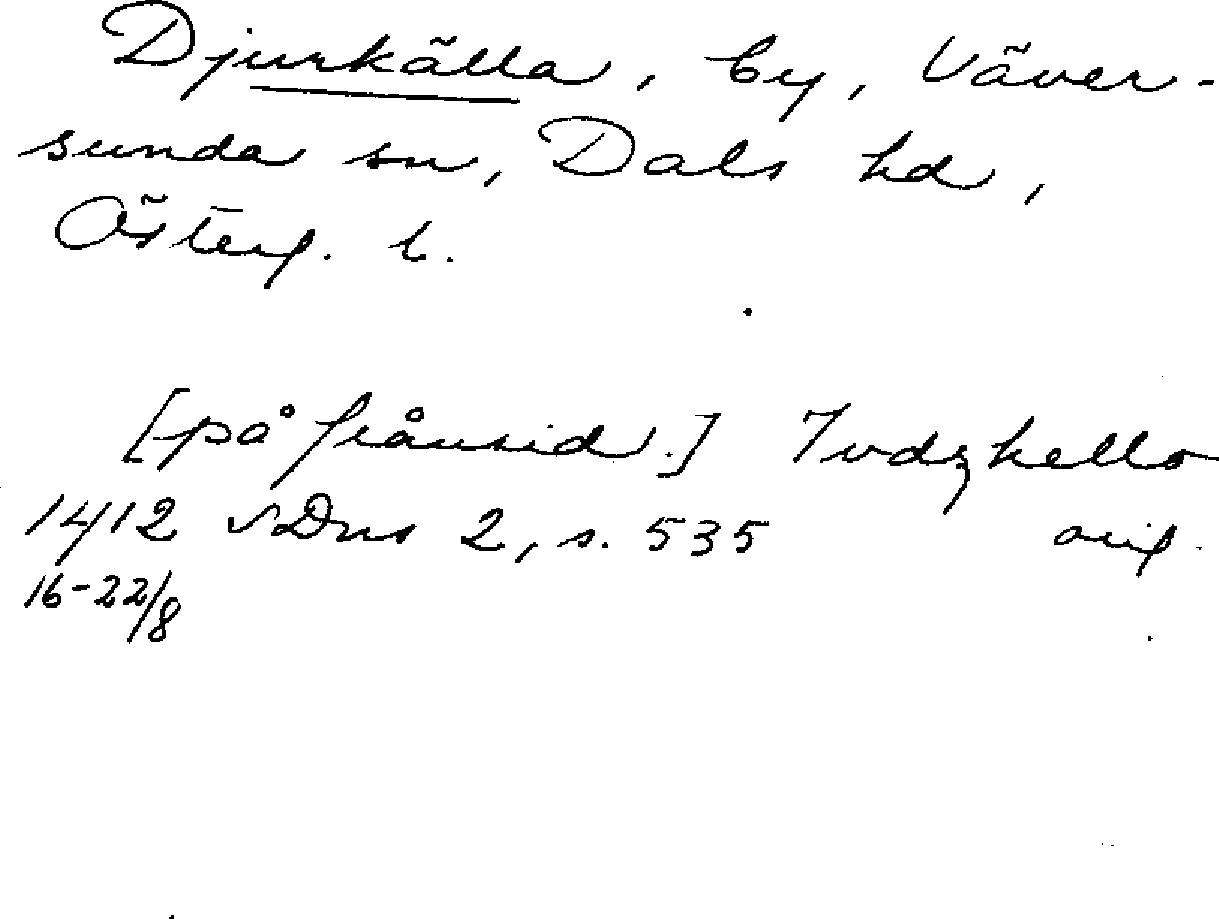 Djurkälla, by, Väver-
sunda sn, Dals hd,
Österg. l.
[på frånsid.] Jvdzkello
1412 SDns 2, s. 535 orig.
16-22/8